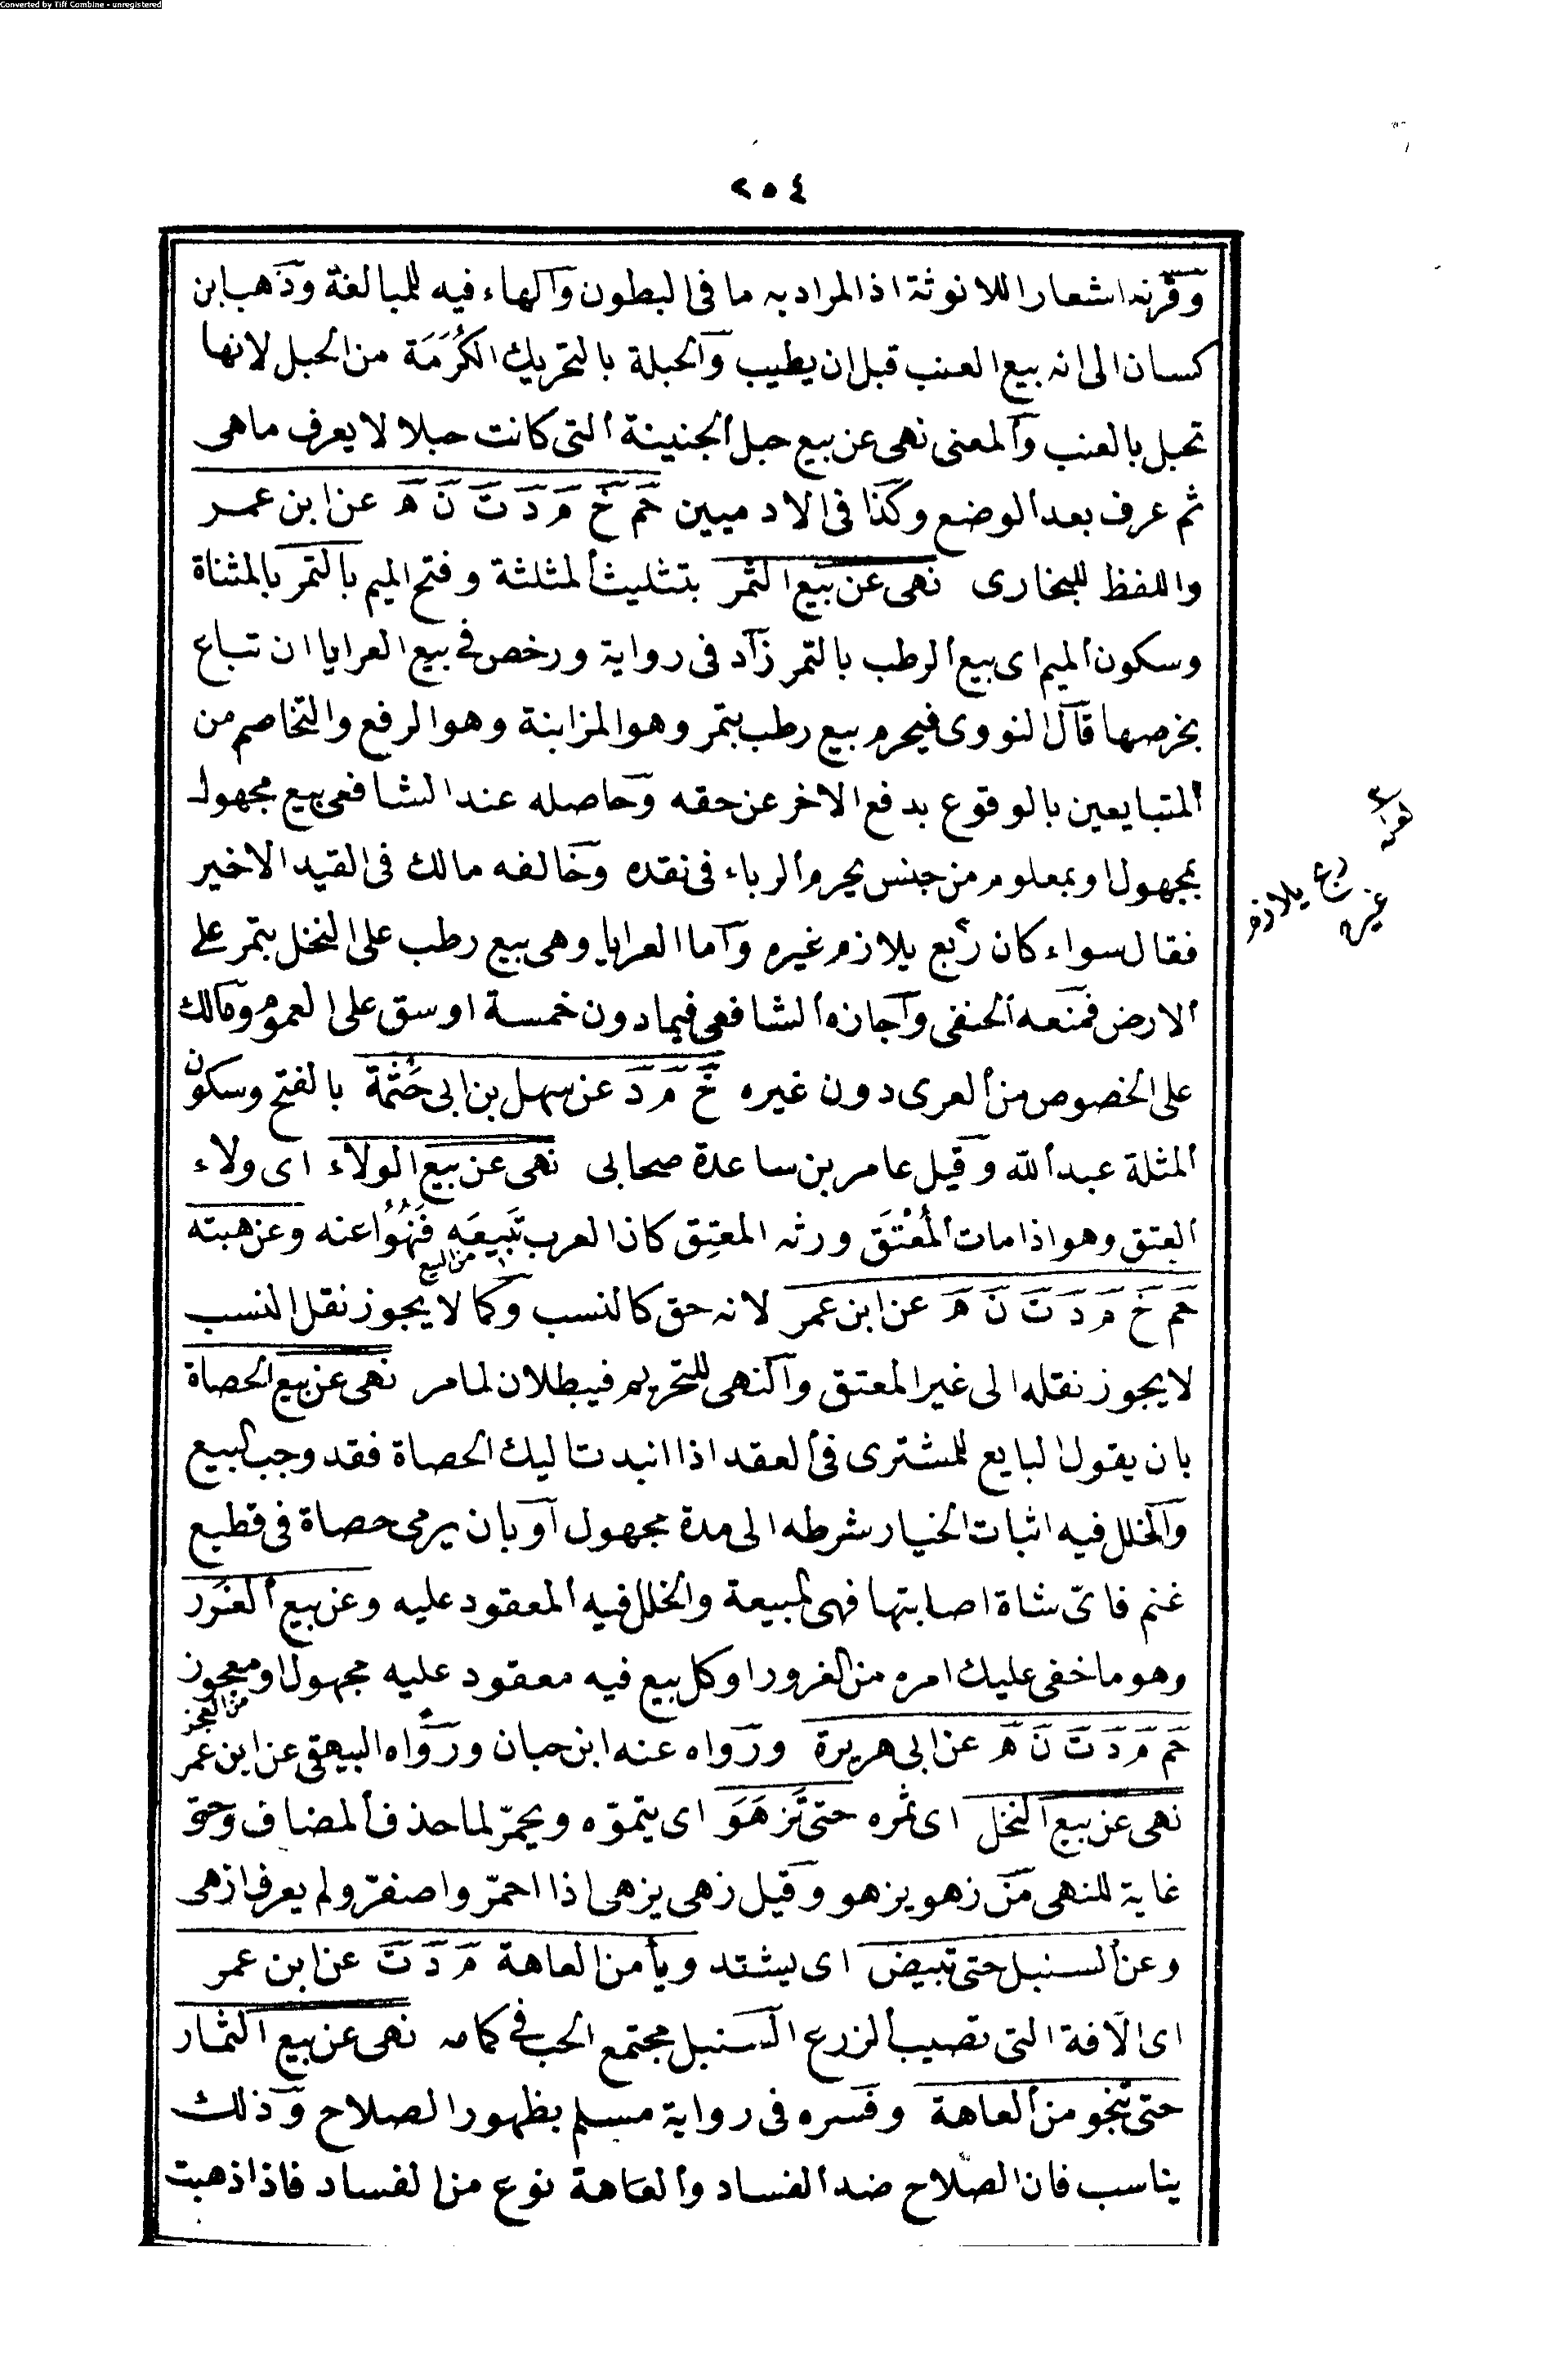 Converted by Tiff Combine - unregistered
٢٥٤
وقرنه اشعارا للانوثة اذ المراد به ما فى البطون والهاء فيه للمبالغة وذهب ابن
كسان الى انه بيع العنب قبل ان يطيب والحبلة بالتحريك الكَرْمَة من الحبل لانها
تحبل بالعنب والمعنى نهى عن بيع حبل الجنينة التى كانت حبلا لا يعرف ماهى
ثم عرف بعد الوضع وكذا فى الادميين حم خ م د ت ن ه عن ابن عمر
واللفظ للبخارى نهى عن بيع الثمر بتثليث المثلثة وفتح الميم بالتمر بالمثناة
وسكون الميم اى بيع الرطب بالتمر زاد فى رواية ورخص فى بيع العرايا ان تباع
بخرصها قال النووى فيحرم بيع رطب بتمر وهو المزابنة وهو الرفع والتخاصم من
المتبايعين بالوقوع بدفع الاخر عن حقه وحاصله عند الشافعى بيع مجهول
بمجهول او بمعلوم من جنس يحرم الرباء فى نقده وخالفه مالك فى القيد الاخير
فقال سواء كان ربع يلازم غيره واما العرايا وهى بيع رطب على النخل بتمر على
الارض فمنعه الحنفى واجازه الشافعى فيما دون خمسة اوسق على العموم ومالك
على الخصوص من العرى دون غيره خ م د عن سهل بن ابى حَثْمَة بالفتح وسكون
المثلة عبد الله وقيل عامر بن ساعدة صحابى نهى عن بيع الولاء اى ولاء
العتق وهو اذا مات المُعْتَق ورثه المعتِق كان العرب تَبيعَه فَنُهُوا عنه وعن هبته
من البيع
حم خ م د ت ن ه عن ابن عمر لانه حق كالنسب وكما لا يجوز نقل النسب
لا يجوز نقله الى غير المعتق والنهى للتحريم فيبطلان لما مر نهى عن بيع الحصاة
بان يقول البايع للمشترى فى العقد اذا انبدت اليك الحصاة فقد وجب البيع
والخلل فيه اثبات الخيار شرطه الى مدة مجهول او بان يرمى حصاة فى قطيع
غنم فاىّ شاة اصابتها فهى المبيعة والخلل فيه المعقود عليه وعن بيع الغَرَر
وهو ما خفى عليك امره من الغرور او كل بيع فيه معقود عليه مجهول او معجوز
من العجز
حم م د ت ن ه عن ابى هريرة ورواه عنه ابن حبان ورواه البيهقى عن ابن عمر
نهى عن بيع النخل اى ثمره حتى تَزهَوَ اى يتموّه ويحمرّ لما حذف المضاف وحتى
غاية للنهى من زهو يزهو وقيل زهى يزهى اذا احمرّ واصفرّ ولم يعرف ازهى
وعن السنبل حتى تبيض اى يشتد ويأمن العاهة م د ت عن ابن عمر
اى الآفة التى تصيب الزرع السنبل مجتمع الحب فى كمامه نهى عن بيع الثمار
حتى تنجو من العاهة وفسره فى رواية مسلم بظهور الصلاح وذلك
يناسب فان الصلاح ضد الفساد والعاهة نوع من الفساد فاذا ذهبت
ربع يلازم
غيره